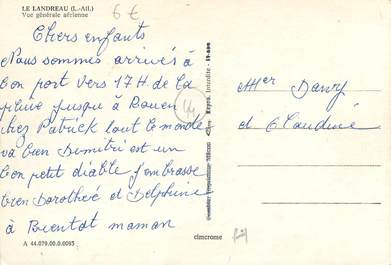 LE LANDREAU (L.-Atl.)
Vue générale aérienne
6 €
Chers enfants
Nous sommes arrivés à
bon port vers 17H. de la
pluie jusqu'à Rouen
chez Patrick tout le monde
va bien Dimitri est un
bon petit diable j'embrasse
bien Dorothée et Delphine
à Bientot maman
A 44.079.00.0.0095
44
Reprod. Interdite
cimcrome
Mer Dany
et Claudine